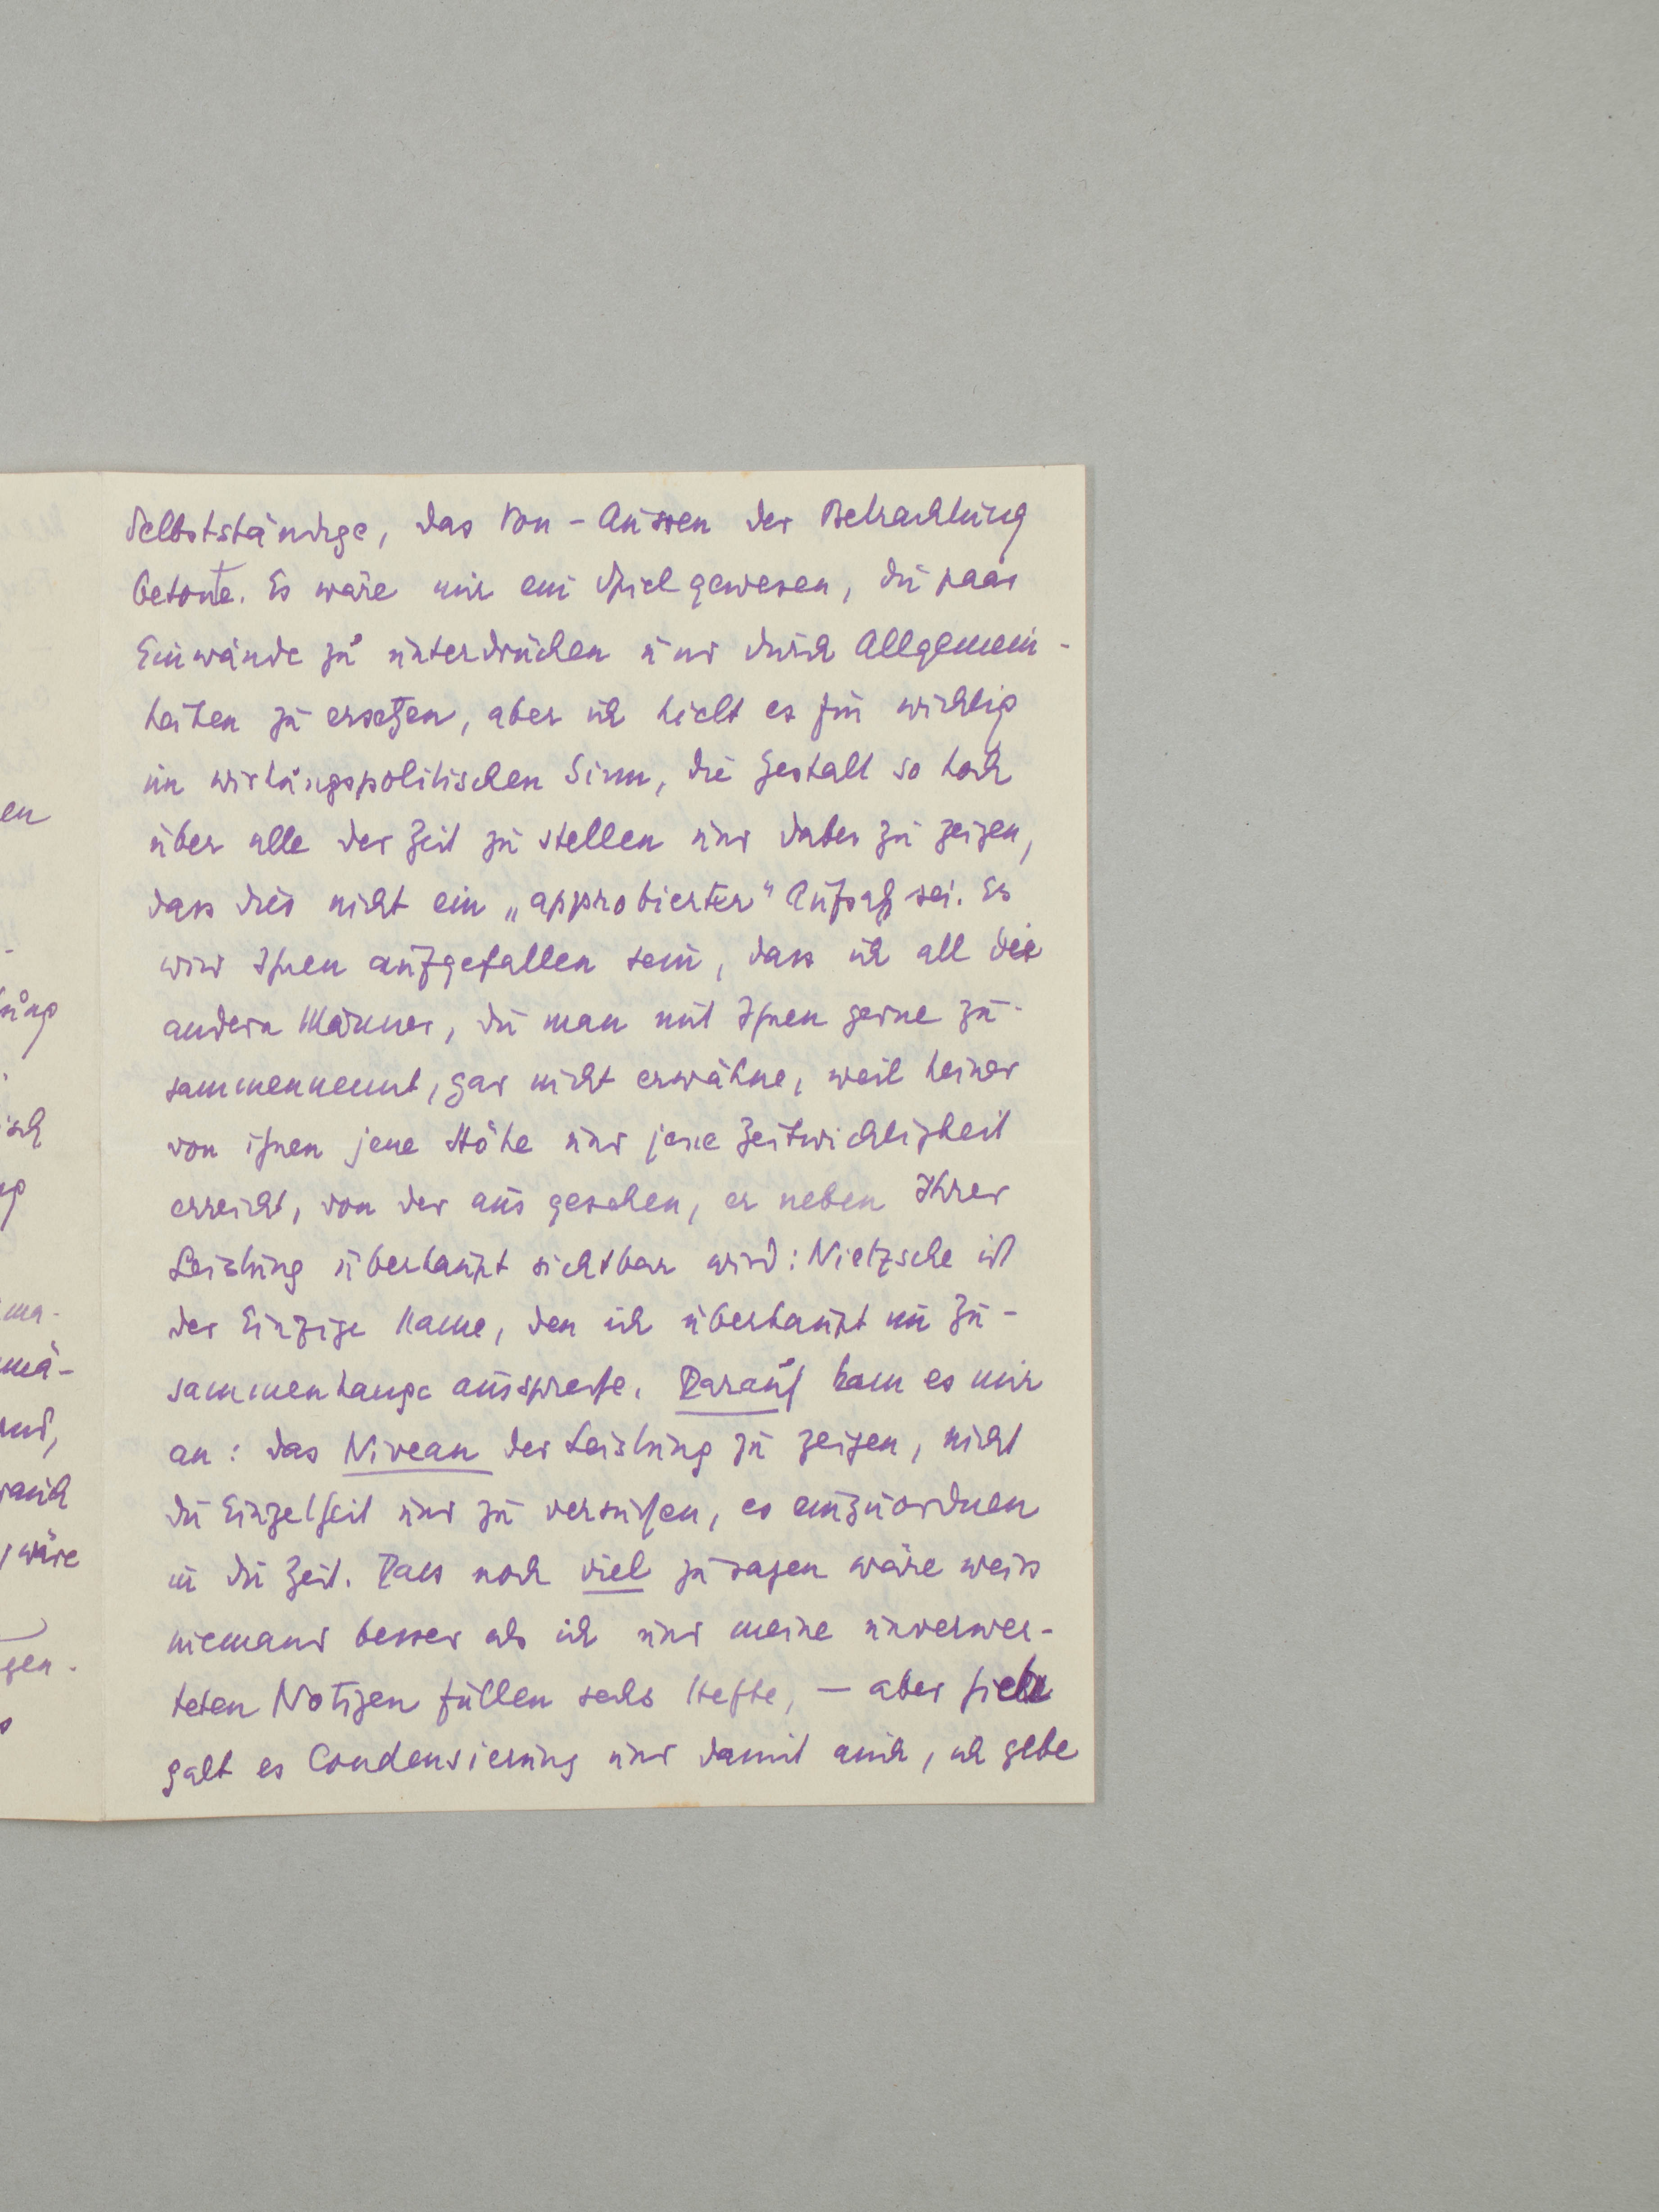 en
-
ung
isch
ng
ma-
mä-
und,
auch
, wäre
gen.
Selbstständige, das Von-Aussen der Betrachtung
betonte. Es wäre mir ein Spiel gewesen, die paar
Einwände zu unterdrücken und durch Allgemein-
heiten zu ersetzen, aber ich hielt es für wichtig
im wirkungspolitischen Sinn, die Gestalt so hoch
über alle der Zeit zu stellen und dabei zu zeigen,
dass dies nicht ein „approbierter" Aufsatz sei. Es
wird Ihnen aufgefallen sein, dass ich all die
andern Männer, die man mit Ihnen gerne zu-
sammennennt, gar nicht erwähne, weil keiner
von ihnen jene Höhe und jene Zeitwichtigkeit
erreicht, von der aus gesehen, er neben Ihrer
Leistung überhaupt sichtbar wird: Nietzsche ist
der Einzige Name, den ich überhaupt im Zu-
sammenhange ausspreche. Darauf kam es mir
an: das Niveau der Leistung zu zeigen, nicht
die Einzelheit und zu versuchen, es einzuordnen
in die Zeit. Dass noch viel zu sagen wäre weiss
niemand besser als ich und meine unverwer-
teten Notizen füllen sechs Hefte, – aber hier
galt es Condensierung und damit auch, ich gebe